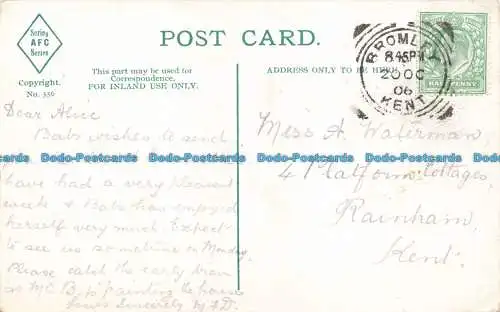 Spring
AFC
Series
Copyright.
No. 336
POST CARD.
This part may be used for
Correspondence.
FOR INLAND USE ONLY.
ADDRESS ONLY TO BE HERE.
BROMLEY
8.45PM
20 OC
06
KENT
HALFPENNY
Dear Alice
Babs wishes to send
Dodo-Postcards Dodo-Postcards Dodo-Postcards Dodo-Postcards Dodo-Postcards
have had a very pleasant
week & Babs has enjoyed
herself very much. Expect
to see us sometime on Monday.
Please catch the early tram
as Mr C.B. is painting the house
Yours Sincerely
Miss A. Waterman
4 Platform Cottages
Rainham,
Kent.